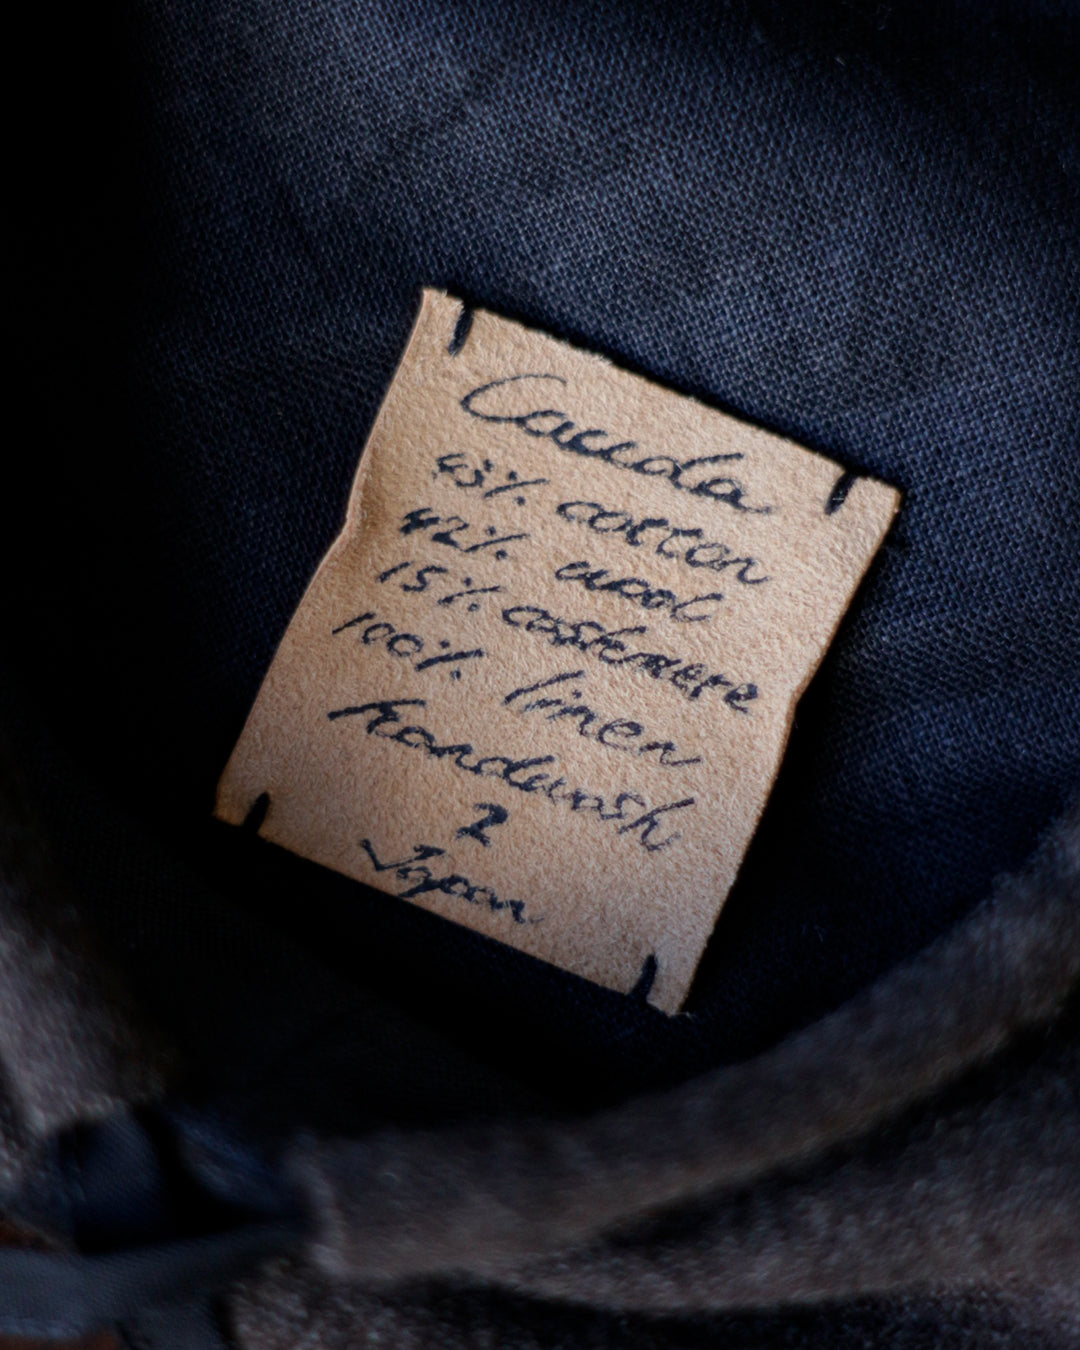 Cauda
43% cotton
42% wool
15% cashmere
100% linen
Handwash
2
Japan